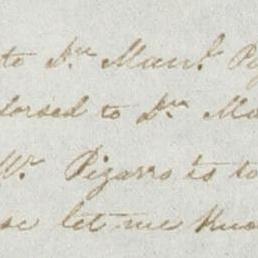 to Dn. Manl. P
dorsed to Dn. Ma
Mr. Pizarro is to
se let me know